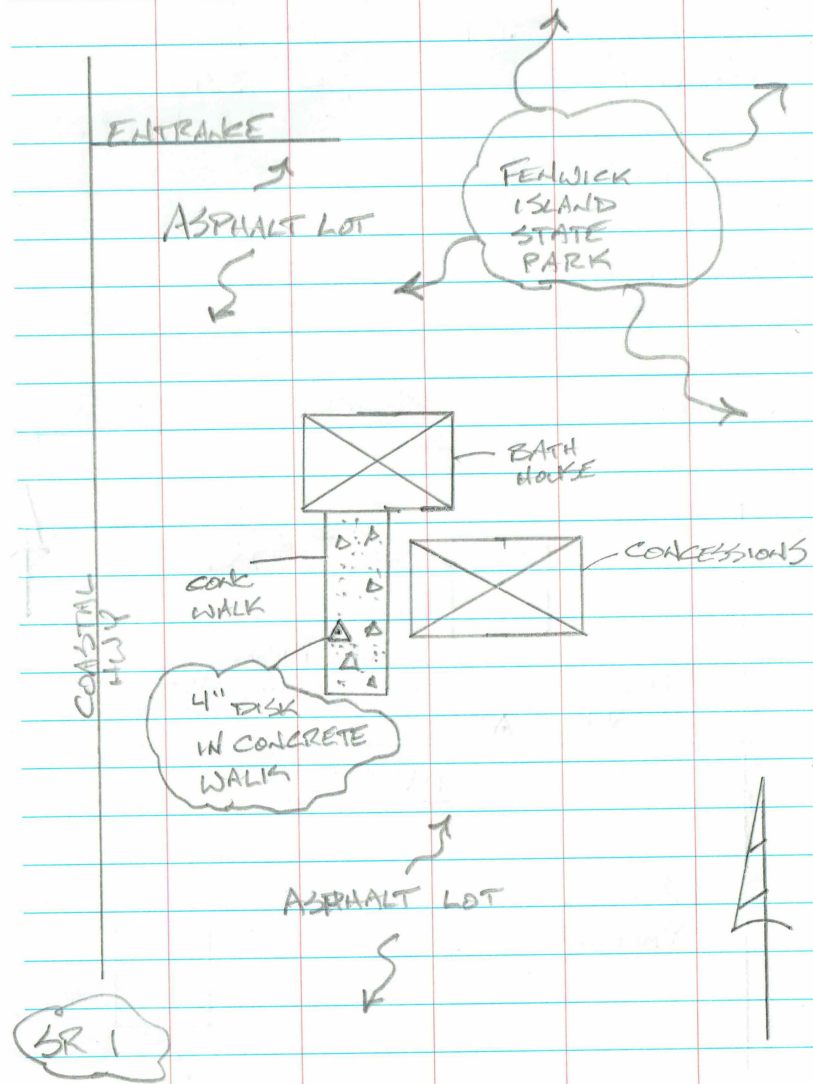 ENTRANCE
ASPHALT LOT
FENWICK
ISLAND
STATE
PARK
BATH
HOUSE
CONCESSIONS
CONC
WALK
COASTAL
HWY
4" DISK
IN CONCRETE
WALK
ASPHALT LOT
SR 1